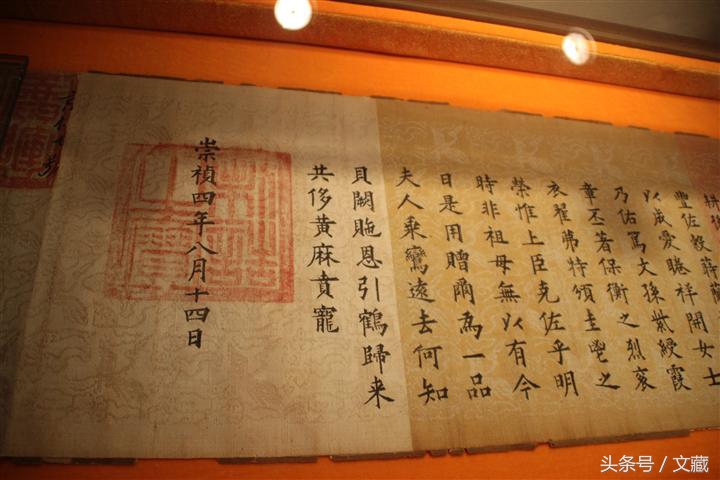 以成愛睠祥開女士
乃佑篤大孫紫綬霞
章丕著保衡之烈袞
衣翟茀特頒圭鬯之
榮惟上臣克佐乎明
時非祖母無以有今
日是用贈爾為一品
夫人乘鸞遠去何知
貝闕貤恩引鶴歸来
共侈黄麻賁寵
崇禎四年八月十四日
头条号 / 文藏